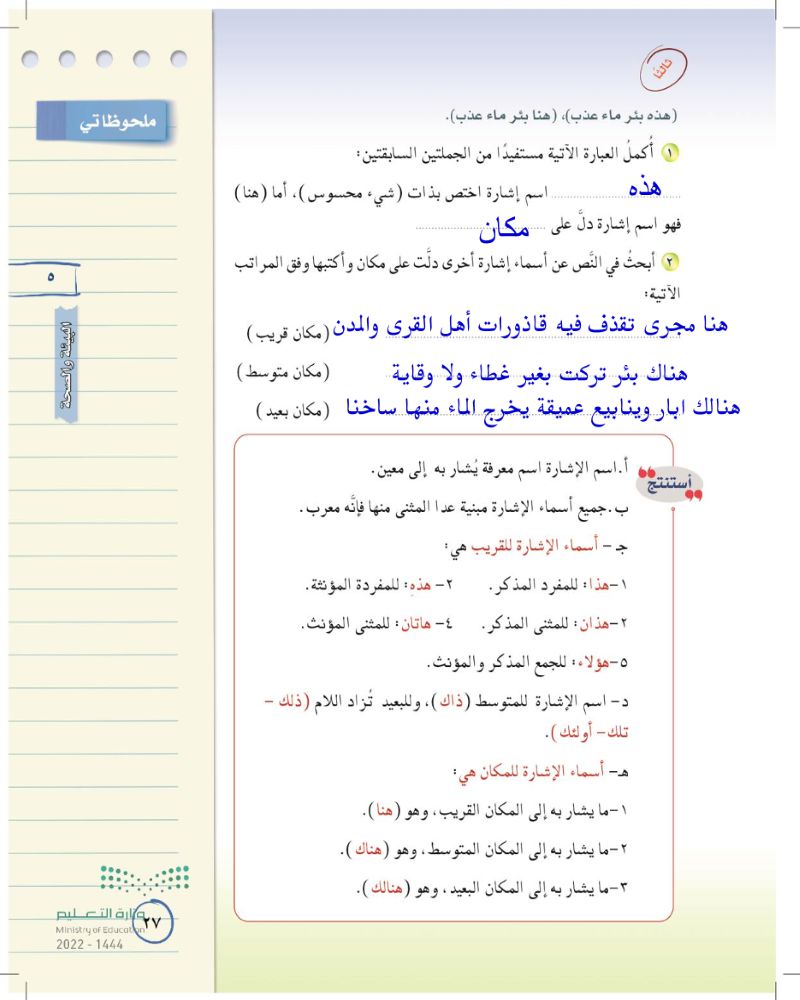 ثالثًا
(هذه بئر ماء عذب)، (هنا بئر ماء عذب).
١ أُكملُ العبارة الآتية مستفيدًا من الجملتين السابقتين:
هذه اسم إشارة اختص بذات (شيء محسوس)، أما (هنا)
فهو اسم إشارة دلَّ على مكان
٢ أبحثُ في النَّص عن أسماء إشارة أخرى دلَّت على مكان وأكتبها وفق المراتب
الآتية:
هنا مجرى تقذف فيه قاذورات أهل القرى والمدن (مكان قريب)
هناك بئر تركت بغير غطاء ولا وقاية (مكان متوسط)
هنالك ابار وينابيع عميقة يخرج الماء منها ساخنا (مكان بعيد)
أستنتج
أ.اسم الإشارة اسم معرفة يُشار به إلى معين.
ب.جميع أسماء الإشارة مبنية عدا المثنى منها فإنَّه معرب.
جـ - أسماء الإشارة للقريب هي:
١-هذا: للمفرد المذكر. ٢- هذهِ: للمفردة المؤنثة.
٢-هذان: للمثنى المذكر. ٤- هاتان: للمثنى المؤنث.
٥-هؤلاء: للجمع المذكر والمؤنث.
د- اسم الإشارة للمتوسط (ذاك)، وللبعيد تُزاد اللام (ذلك -
تلك- أولئك).
هـ- أسماء الإشارة للمكان هي:
١-ما يشار به إلى المكان القريب، وهو (هنا).
٢-ما يشار به إلى المكان المتوسط، وهو (هناك).
٣-ما يشار به إلى المكان البعيد، وهو (هنالك).
ملحوظاتي
٥
البيئة والصحة
وزارة التعليم
Ministry of Education
٢٧
2022 - 1444